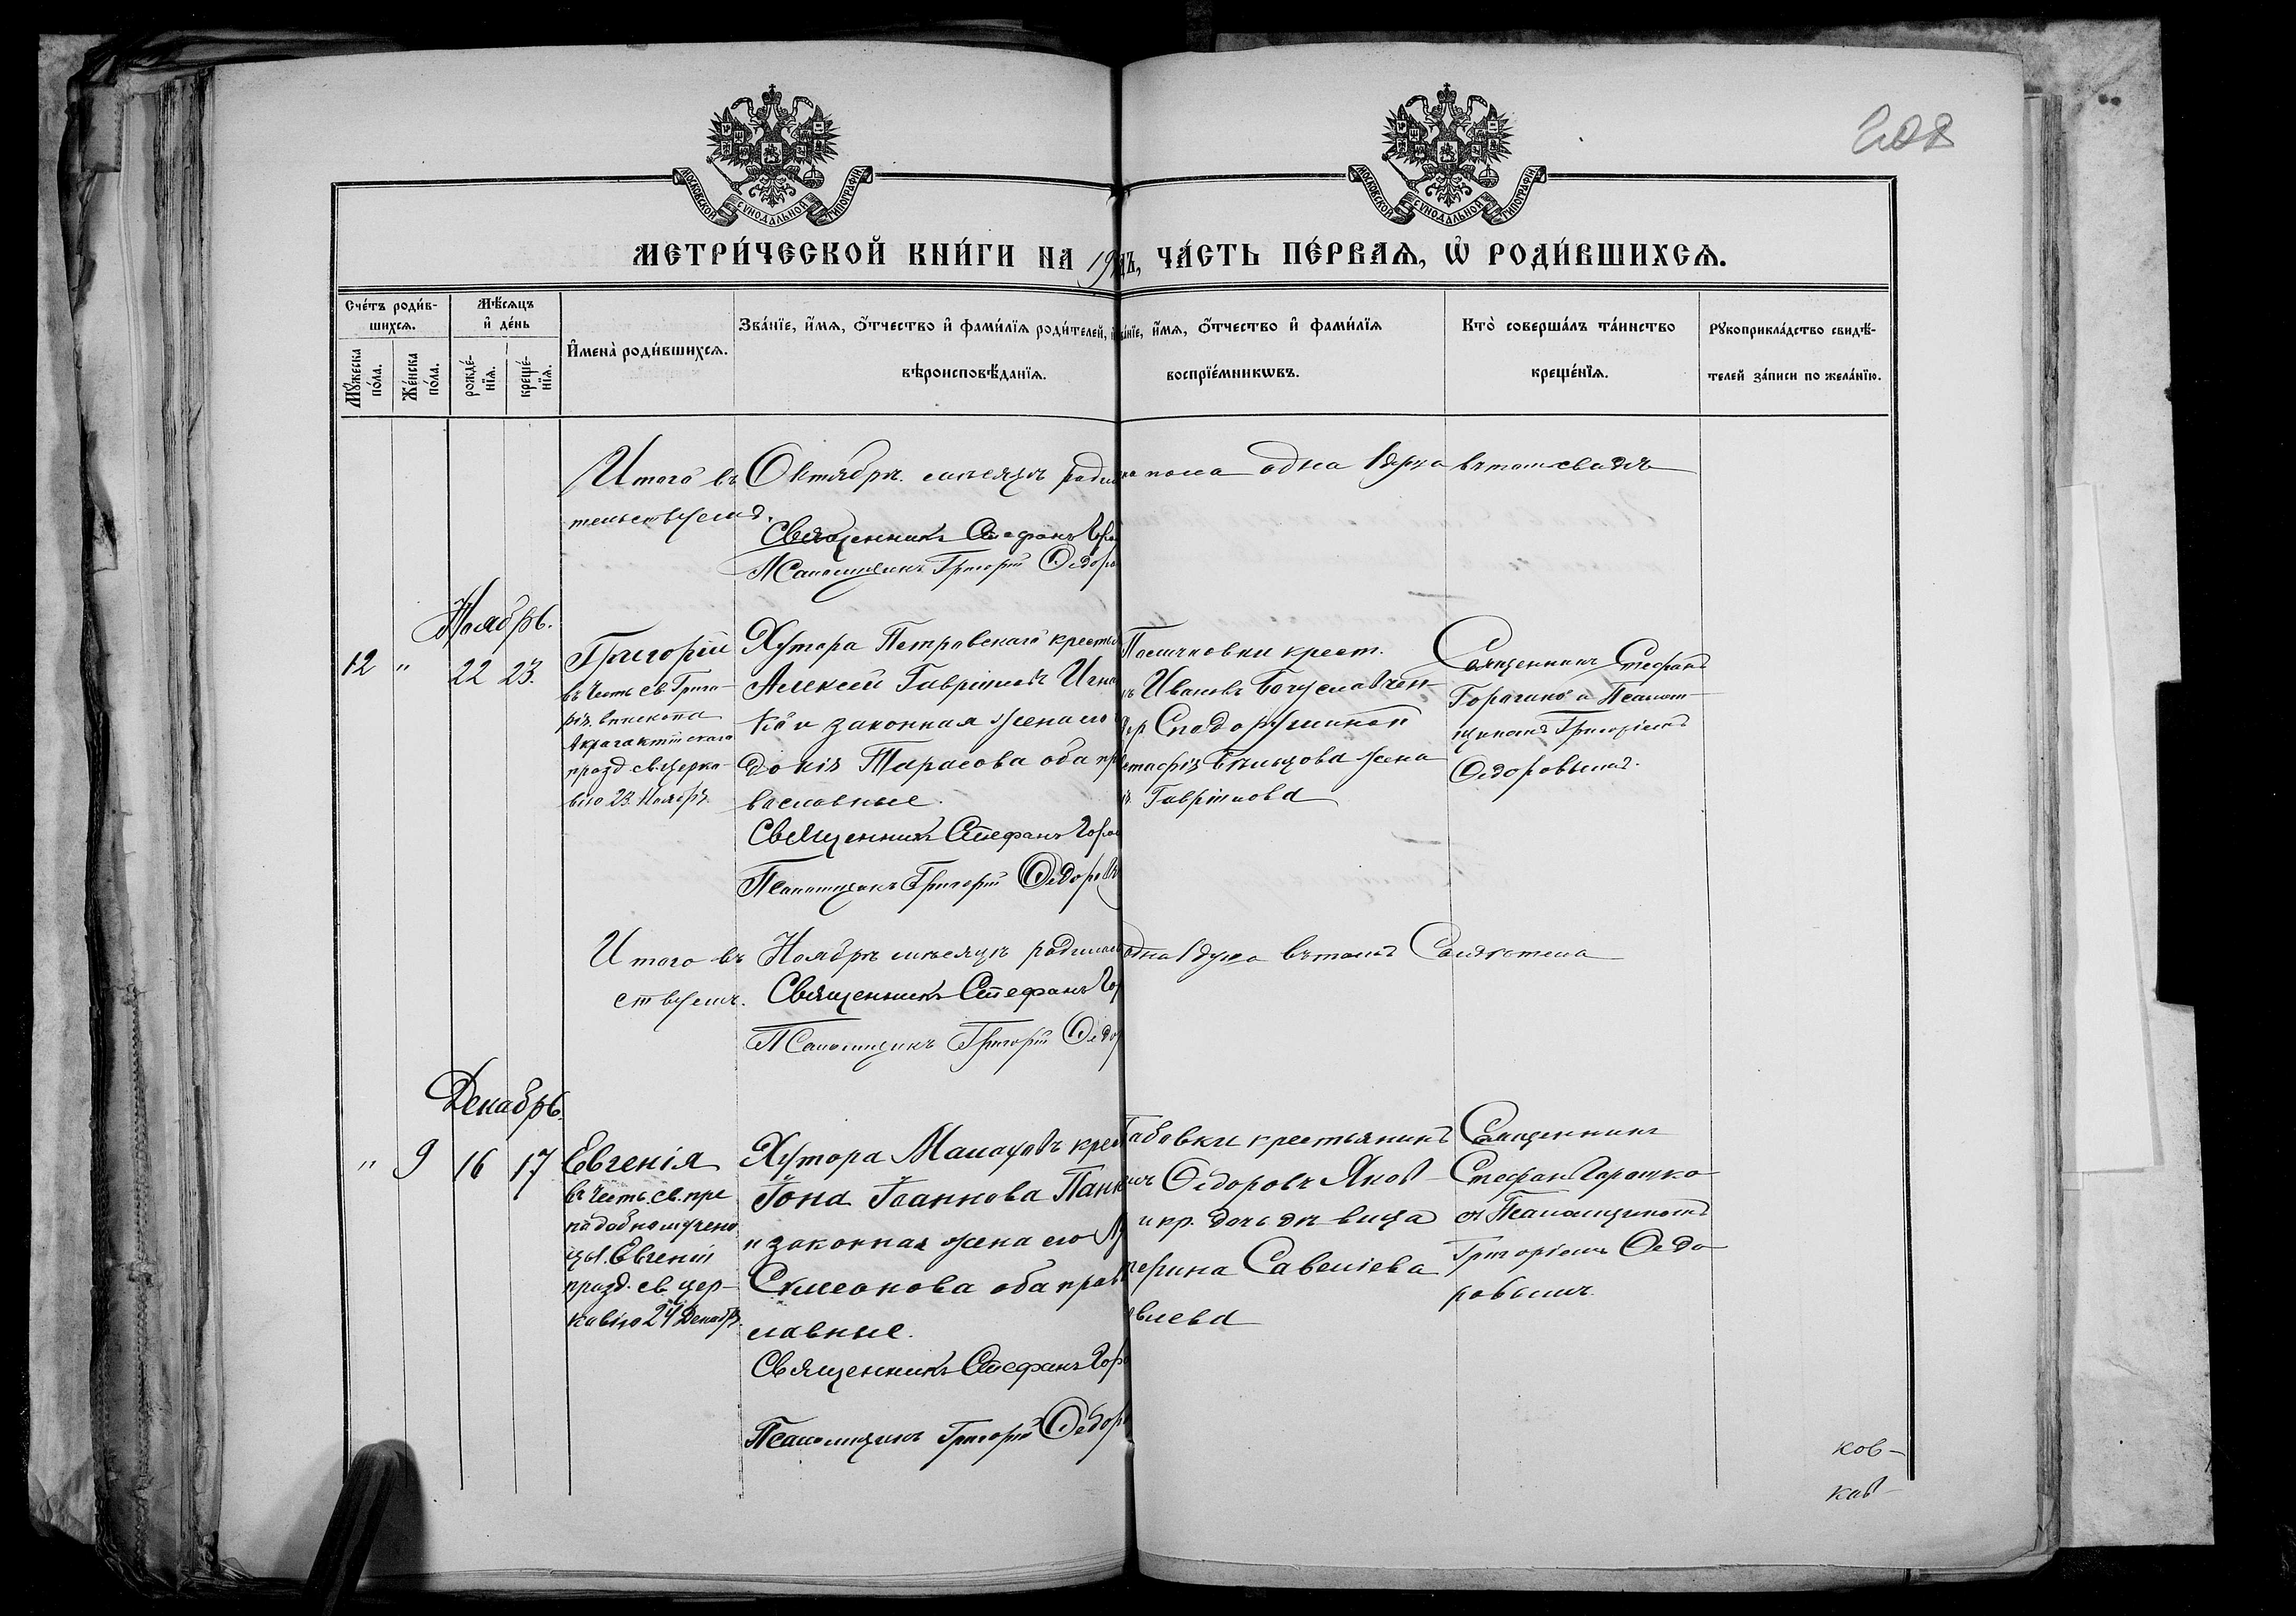 208
МОСКОВСКОЙ СѴНОДАЛЬНОЙ ТИПОГРАФІИ
МОСКОВСКОЙ СѴНОДАЛЬНОЙ ТИПОГРАФІИ
МЕТРИ́ЧЕСКОЙ КНИ́ГИ НА 19 ДЪ, ЧА́СТЬ ПЕ́РВАѦ, Ѡ҆ РОДИ́ВШИХСѦ.
Сче́тъ роди́в-
шихсѧ.
Мꙋ́жеска по́ла.
Же́нска по́ла.
Мѣ́сѧцъ
и҆ де́нь
рожде́-нїѧ.
креще́-нїѧ.
И҆мена̀ роди́вшихсѧ.
Зва́нїе, и҆́мѧ, ѻ҆́тчество и҆ фами́лїѧ роди́телей,
вѣроисповѣ́данїѧ.
ва́нїе, и҆́мѧ, ѻ҆́тчество и҆ фами́лїѧ
воспрїе́мникѡвъ.
Кто̀ соверша́лъ та́инство
креще́нїѧ.
Рꙋкоприкла́дство свидѣ́-
телей за́писи по жела́нїю.
Итого въ Октябрѣ мѣсяцѣ роди ка пола одна 1 душа въ томъ свидѣ
тельствуемъ.
Священникъ Стефанъ Гора
Псаломщикъ Григорій Ѳедоро
Ноябрь.
12 " 22 23.
Григорій
въ честь св. Григо-
рія епископа
Акрагантійскаго
празд св. церко-
вію 23. Ноябр.
Хутора Петровскаго крестья
Алексій Гавріиловъ Игна
ко и законная жена его
докія Тарасова оба пра
вославные.
Священникъ Стефанъ Горо
Псаломщикъ Григорій Ѳедоров
крест.
ъ Ивановъ Богуславчен-
жена
Гавріилова
Священникъ Стефанъ
и Псалом-
щикомъ Григоріемъ
Ѳедоровымъ.
Итого въ Ноябрѣ мѣсяцѣ родилась одна 1 душа въ томъ Свидѣтель
ствуемъ. Священникъ Стефанъ Го
Псаломщикъ Григорій Ѳедо
Декабрь.
" 9 16 17
Евгенія
въ честь св. пре
подобномучени
цы. Евгеніи
празд. св. цер-
ковію 24 Декабр.
Хутора крес
Іона Іоаннова Панк
и законная жена его
Симеонова оба прав
славные.
Священникъ Стефанъ Гор
Псаломщикъ Григорій Ѳедор
бовки крестьянинъ
Ѳедоровъ Яков
и кр. дочь дѣвица
терина Савеліева
влева
Священникъ
Стефанъ Горошко
съ Псаломщикомъ
Григоріемъ Ѳедо
ровымъ.
ков-
кав-